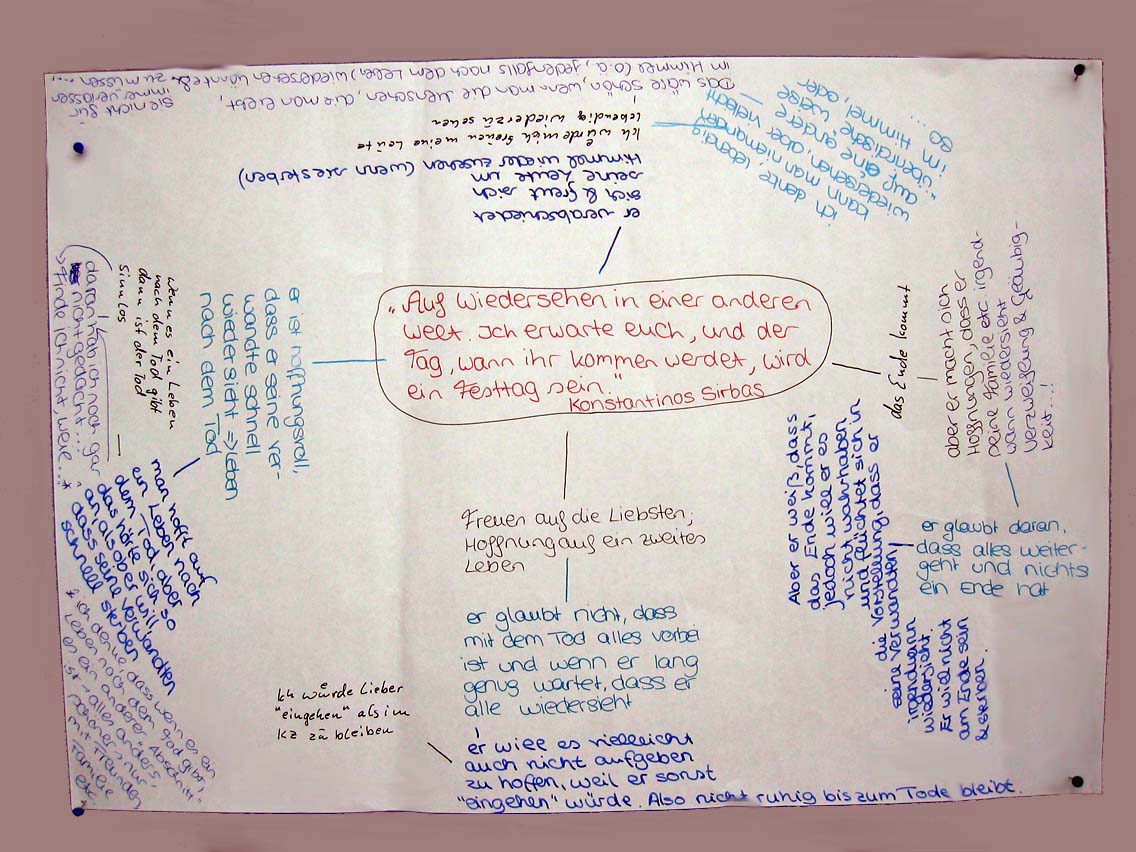 „Auf Wiedersehen in einer anderen
Welt. Ich erwarte euch, und der
Tag, wann ihr kommen werdet, wird
ein Festtag sein."
Konstantinos Sirbas
Das wäre schön, wenn man die Menschen, die man liebt,
im Himmel (o.ä, jedenfalls nach dem Leben) wiedersehen könnte &
sie nicht für
immer verlassen
zu müssen ...
Ich würde mich freuen meine Leute
lebendig wiederzusehen
er verabschiedet
sich & freut sich
seine Leute im
Himmel wieder zusehen (wenn sie sterben)
ich denke lebendig
kann man niemanden
wiedersehen, aber vieleicht
auf eine andere
überirdische Weise
im Himmel, oder
so
das Ende kommt
aber er macht sich
Hoffnungen, dass er
seine Familie etc irgend-
wann wiedersieht
Verzweiflung & Gläubig-
keit...!
er glaubt daran,
dass alles weiter-
geht und nichts
ein Ende hat
Aber er weiß, dass
das Ende kommt,
jedoch will er es
nicht wahrhaben
und flüchtet sich in
die Vorstellung, dass er
seine Verwandten
irgendwann
wiedersieht.
Er will nicht
am Ende sein
Freuen auf die Liebsten;
Hoffnung auf ein zweites
Leben
er glaubt nicht, dass
mit dem Tod alles vorbei
ist und wenn er lang
genug wartet, dass er
alle wiedersieht
er will es vielleicht
auch nicht aufgeben
zu hoffen, weil er sonst
"eingehen" würde. Also nicht ruhig bis zum Tode bleibt.
Ich würde Lieber
"eingehen" als im
KZ zu bleiben
er ist hoffnungsvoll,
dass er seine Ver-
wandte schnell
wiedersieht => leben
nach dem Tod
wenn es ein Leben
nach dem Tod gibt
dann ist der Tod
sinnlos
daran hab ich noch gar
nicht gedacht...!
→ Finde ich nicht, weil... *
man hofft auf
ein Leben nach
dem Tod, aber
das hörte sich so
an, als ob er will
dass seine Verwandten
schnell sterben
* ich denke, dass wenn es ein
Leben nach dem Tod gibt,
es ein anderer Abschnitt
ist → alles anders
schöner → nur
mit Freunden
Familie
etc